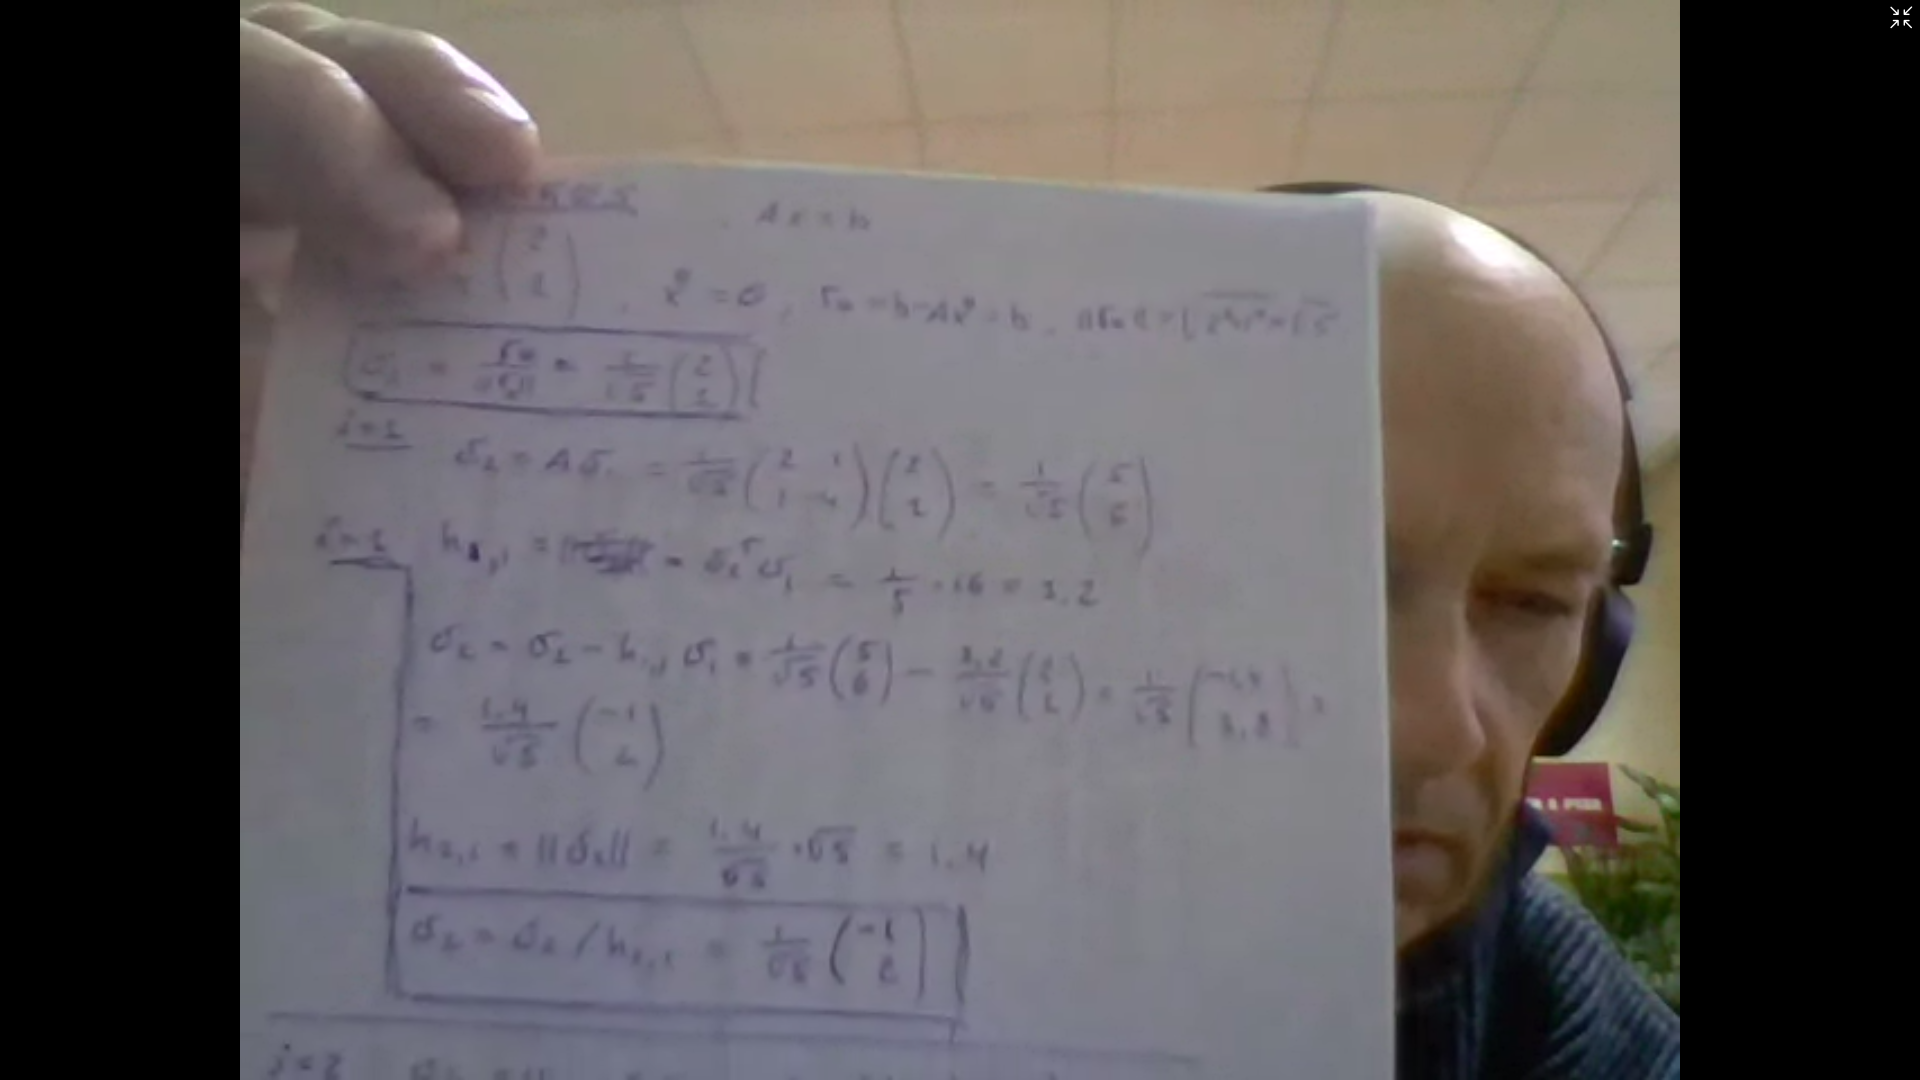 Ax = b
(2 1), x⁰ = 0, r₀ = b - Ax⁰ = b, ||r₀|| = √2²+1² = √5
υ₁ = r₀/||r₀|| = 1/√5 (2 1)
j=1 υ₂ = Aυ₁ = 1/√5 (2 1 1 4)(2 1) = 1/√5 (5 6)
i=1 = υ₂ᵀυ₁ = 1/5 · 16 = 3.2
υ₂ = υ₂ - h₁,₁ υ₁ = 1/√5 (5 6) - 3.2/√5 (2 1) = 1/√5 (-1.4 2.8) =
= 1.4/√5 (-1 2)
h₂,₁ = ||υ₂|| = 1.4/√5 · √5 = 1.4
υ₂ = υ₂ / h₂,₁ = 1/√5 (-1 2)
j=2